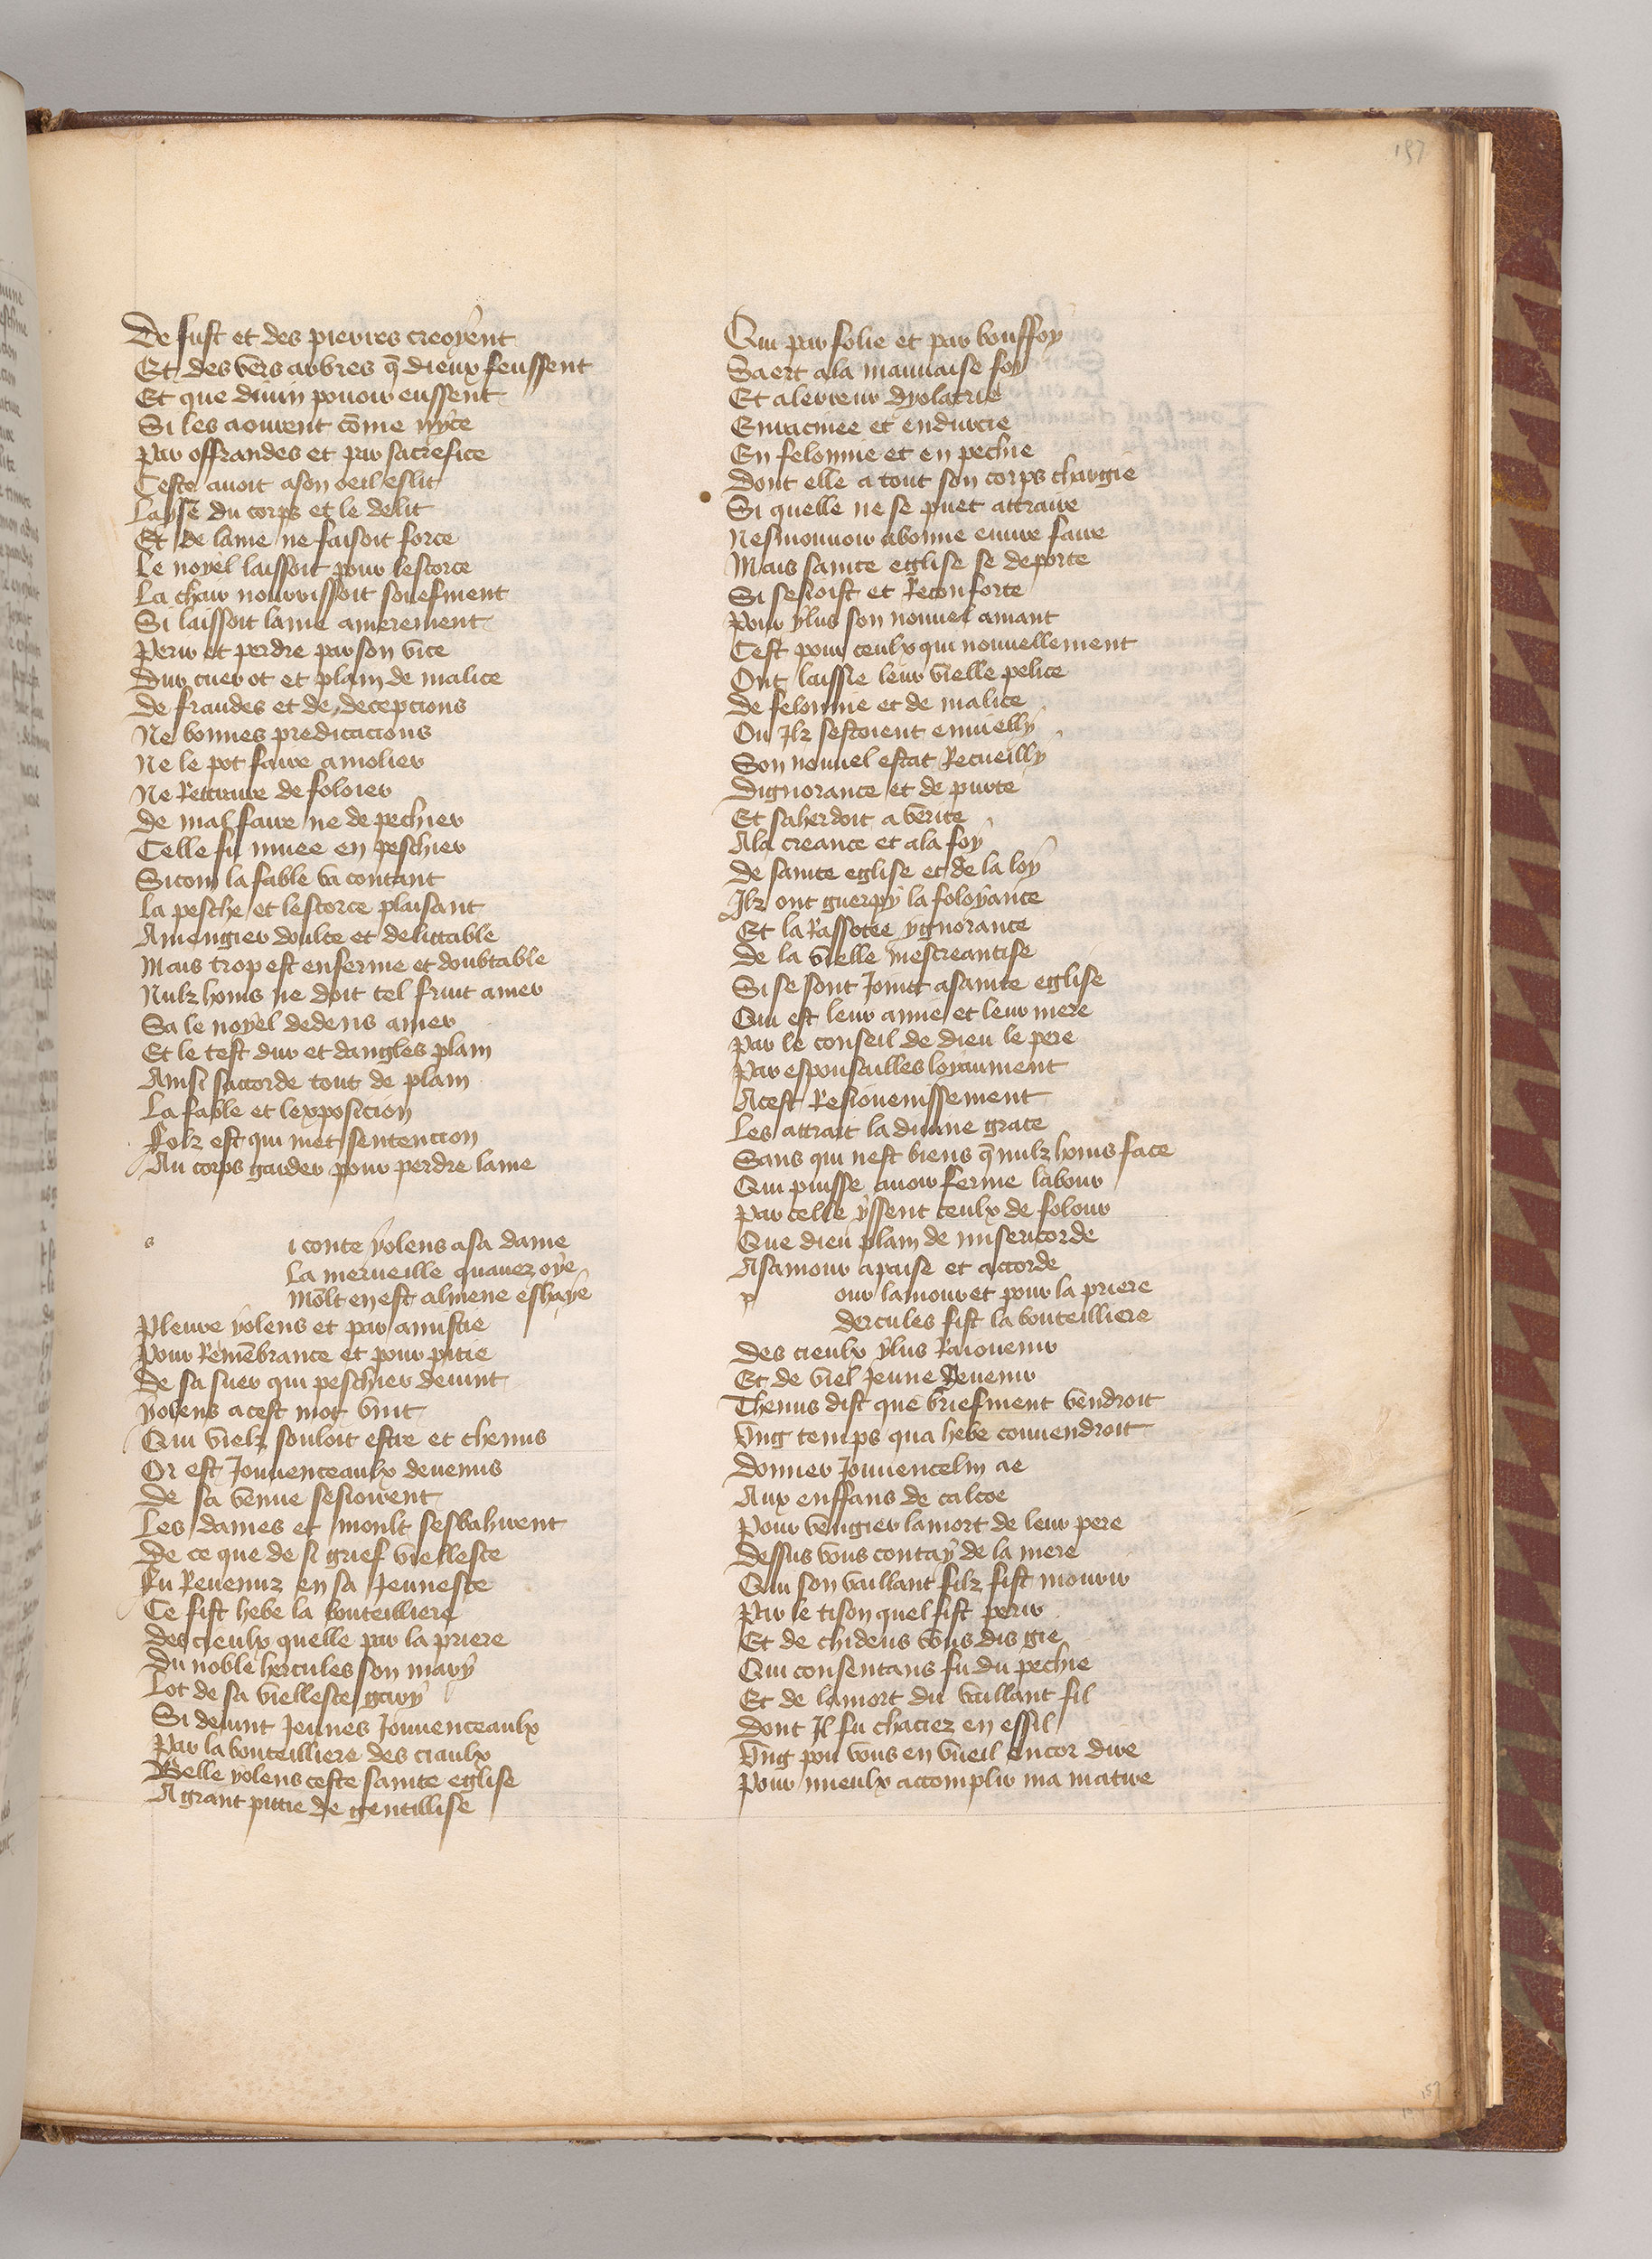 157
De fust et des pierres creoyent
Et des vers arbres q̄ dieux feussent
Et que diuin pouoir eussent
Si les aourent cōme nyce
Par offrandes et par sacrefice
Ceste auoit a son oeil eslit
Layse du corps et le delit
Et de lame ne faisoit force
Le noyel laissoit pour lescorce
La chair nourrissoit souefment
Si laissoit lame amerement
Perir et perdre par son vice
Dur cuer ot et plain de malice
De fraudes et de decepcions
Ne bonnes predicacions
Ne le pot faire amolier
Ne Retraire de foloier
De mal faire ne de pechier
Celle fu muee en peschier
Sicom la fable va contant
La pesche et lescorce plaisant
A mengier doulce et delittable
Mais trop est enferme et doubtable
Nulz homs ne doit tel fruit amer
Sa le noyel dedens amer
Et le test dur et dangles plain
Ainsi saccorde tout de plain
La fable et lexposicion
Folz est qui met sentencion
Au corps garder pour perdre lame
s i conte yolens a sa dame
La merueille quauez oye
Mōlt en est almene esbaye
Pleure yolens et par amistie
Pour Remēbrance et pour pitie
De sa suer qui peschier deuint
yolens a cest mot vint
Qui vielz souloit estre et chenus
Or est Jouuenceaulx deuenus
De sa venue sesioirent
Les dames et moult sesbahirent
De ce que de si grief viellesce
Fu Reuenuz en sa Jeunesce
Ce fist hebe la bouteilliere
Des cieulx quelle par la priere
Du noble hercules son mary
Lot de sa viellesce gary
Si deuint Jeunes Jouuenceaulx
Par la bouteilliere des ciaulx
Belle yolens ceste sainte eglise
A grant pitie de gentillise
Qui par folie et par bouffoy
Saert a la mauuaise foy
Et a lerreur dyolatrie
Enracinee et endurcie
En felonnie et en pechie
Dont elle a tout son corps chargie
Si quelle ne se puet attraire
Nesmouuoir a bonne euure faire
Mais sainte eglise se deporte
Si sesioist et Reconforte
Pour ylus son nouuel amant
Cest pour ceulx qui nouuellement
Ont laissie leur vielle pelice
De felonnie et de malice
Ou Jlz sestoient enuielly
Son nouuel estat Recueilly
Dignorance et de purte
Et saherdoit a verite
A la creance et a la foy
De sainte eglise et de la loy
Jlz ont guerpy la foloyance
Et la Rassotee ygnorance
De la vielle mescreantise
Si se sont Joint a sainte eglise
Qui est leur amie et leur mere
Par le conseil de dieu le pere
Par espousailles loyaument
A cest Resiouenissement
Les attrait la diuine grace
Sans qui nest biens q̄ nulz homs face
Qui puisse auoir ferme labour
Par celle yssent ceulx de folour
Que dieu plain de misericorde
A samour apaise et accorde
p our lamour et pour la priere
Dercules fist la bouteilliere
Des cieulx ylus Raiouenir
Et de viel Jeune Deuenir
Themis dist que briefment vendroit
Vng temps qua hebe conuendroit
Donner Jouuencelin ae
Aux enffans de calcoe
Pour vengier la mort de leur pere
Dessus vous contay de la mere
Qui son vaillant filz fist mourir
Par le tison quel fist perir
Et de chidens vous dis gie
Qui consentans fu du pechie
Et de la mort du vaillant fil
Dont Jl fu chaciez en essil
Vng pou vous en vueil encor dire
Pour mieulx accomplir ma matire
157